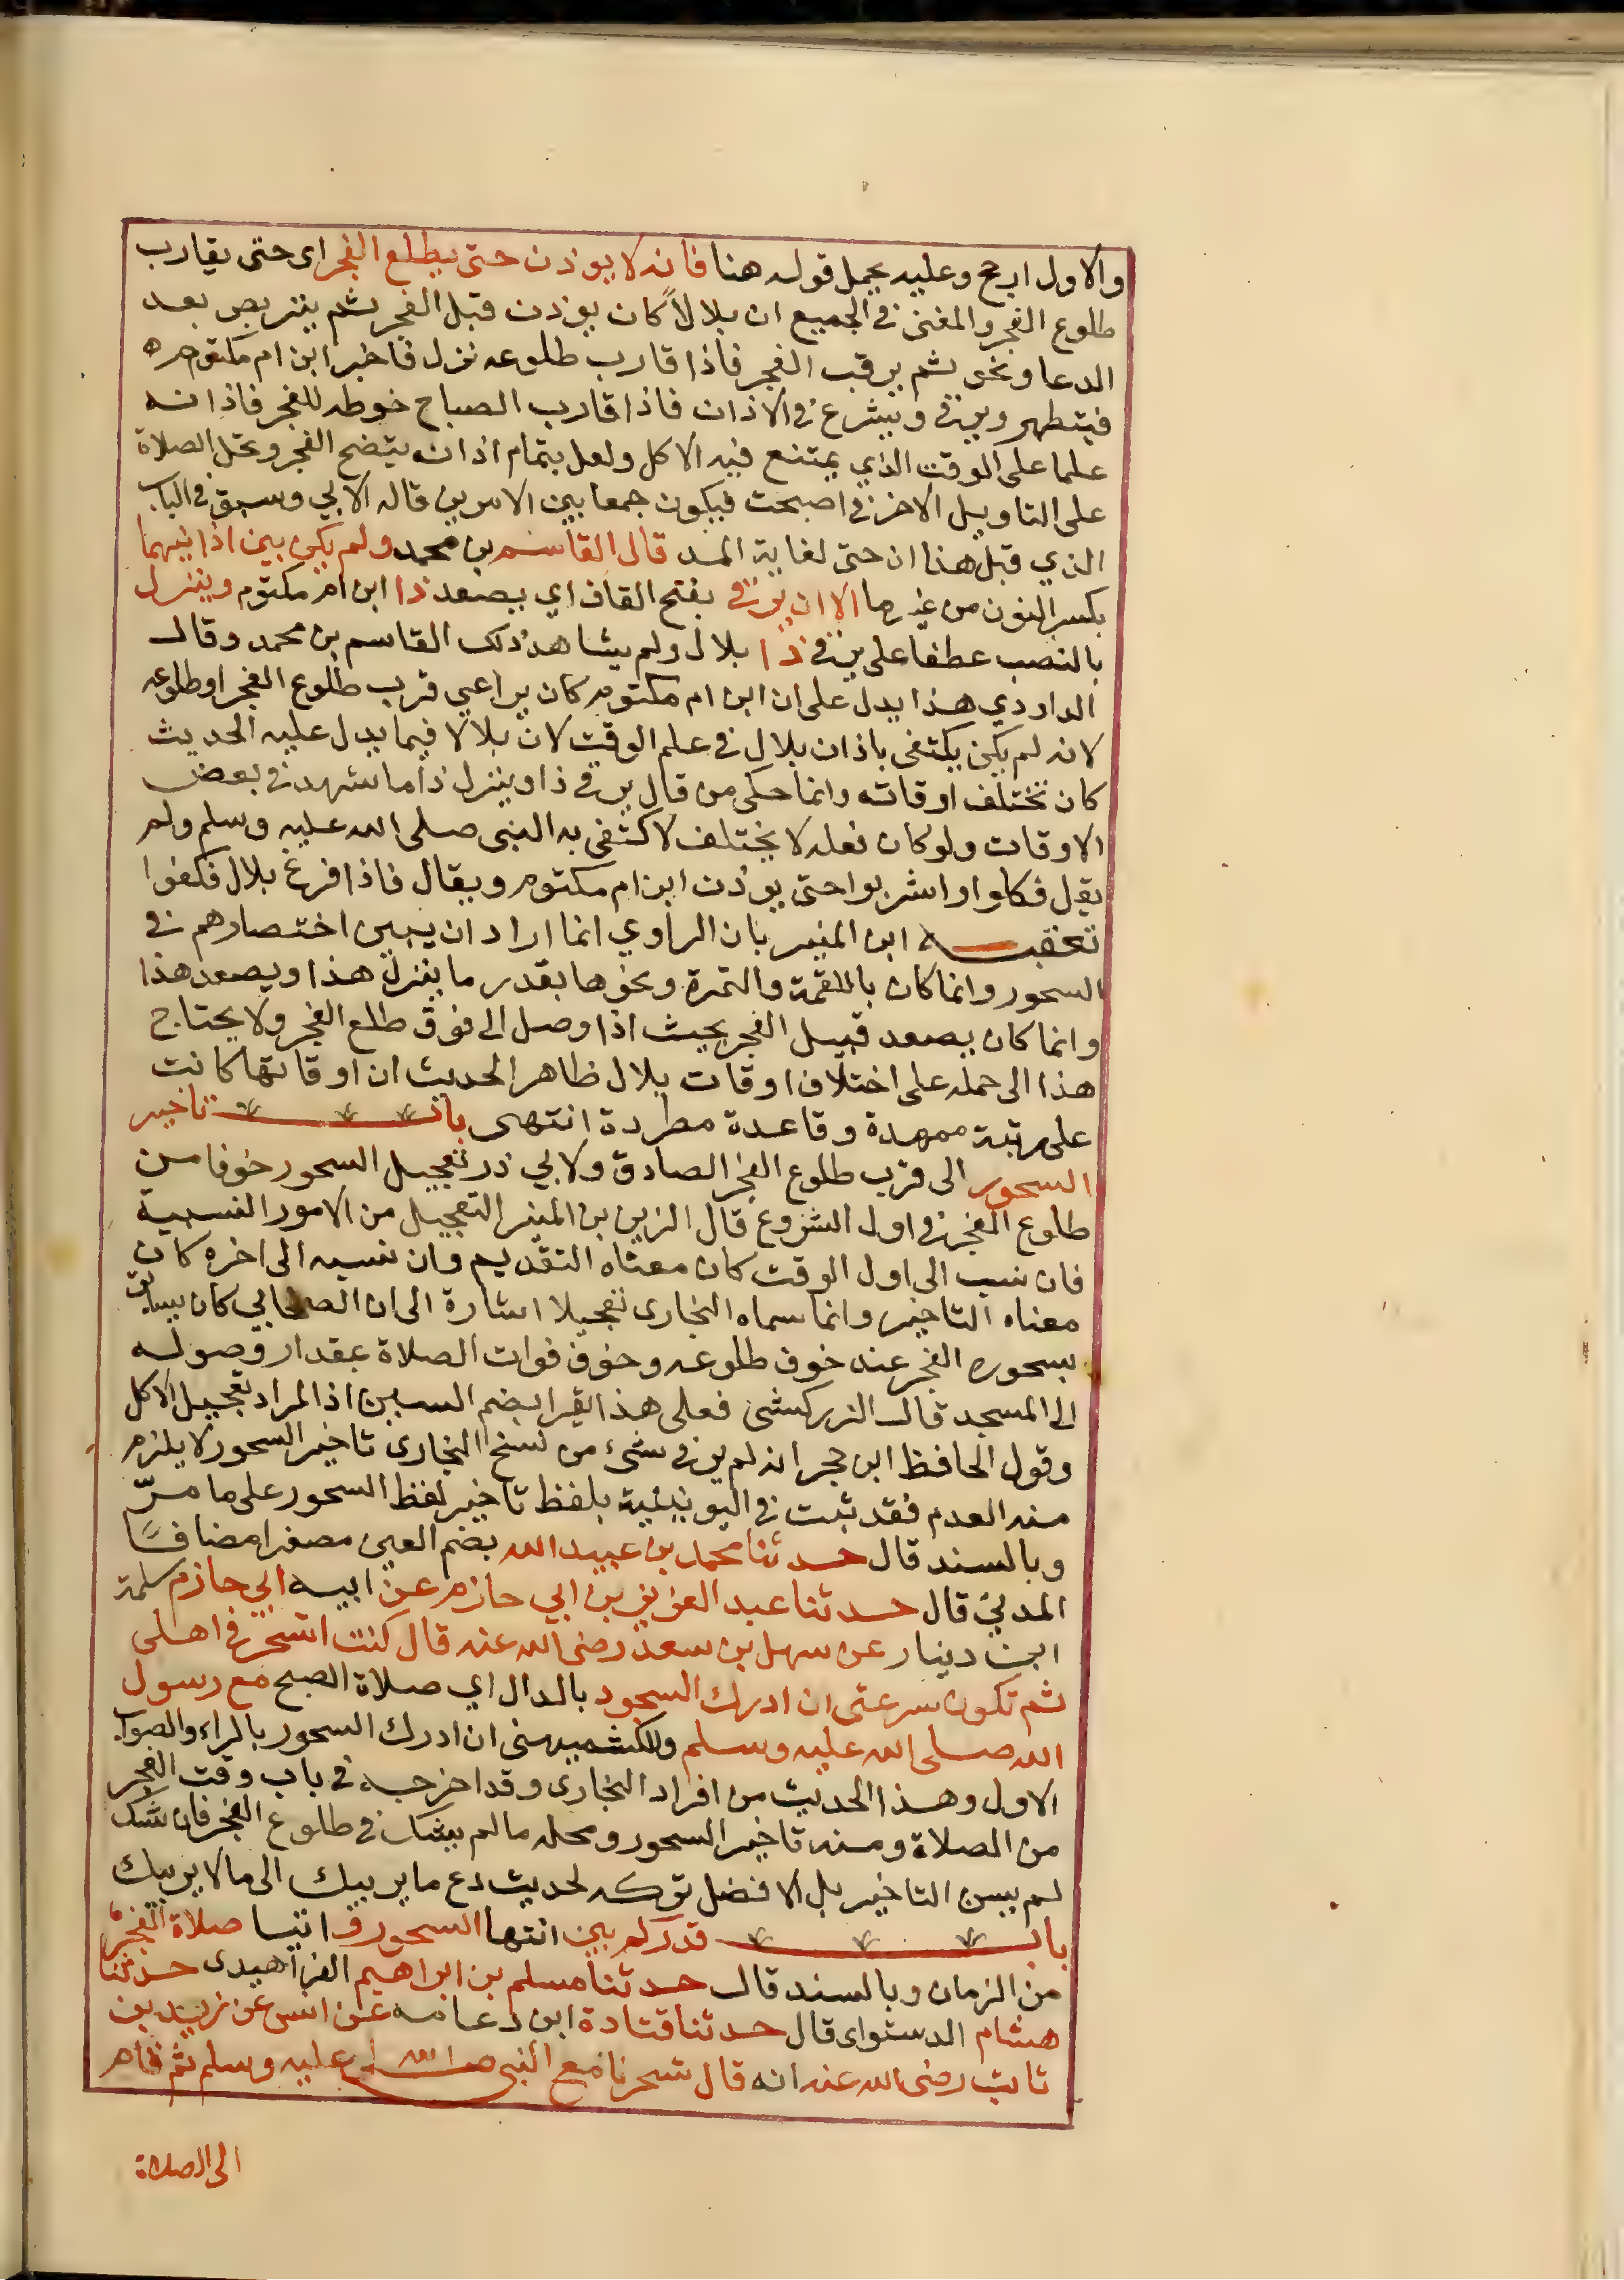 والاول ارجح وعليه يحمل قوله هنا فانه لا يوذن حتى يطلع الفجر اى حتى يقارب
طلوع الفجر والمعنى في الجميع ان بلالاً كان يوذن قبل الفجر ثم يتربص بعد
الدعا ونحوه ثم يرقب الفجر فاذا قارب طلوعه نزل فاخبر ابن ام مكتوم
فيتطهر ويرقى ويشرع في الاذان فاذا قارب الصباح للفجر فاذانه
علما على الوقت الذي يمتنع فيه الاكل ولعل بتمام اذانه يتضح الفجر وتحل الصلاة
على التاويل الاخر في اصبحت فيكون جمعا بين الامرين قاله الابي وسبق في الباب
الذي قبل هذا ان حتى لغاية المد قال القاسم بن محمد ولم يكن بين اذانيهما
بكسر النون من غير ما الا ان يرقى بفتح القاف اي يصعد ذا ابن ام مكتوم وينزل
بالنصب عطفا على يرقى ذا بلال ولم يشاهد ذلك القاسم بن محمد وقال
الداودي هذا يدل على ان ابن ام مكتوم كان يراعي قرب طلوع الفجر او طلوعه
لانه لم يكن يكتفى باذان بلال في علم الوقت لان بلالا فيما يدل عليه الحديث
كان تختلف اوقاته وانما حكى من قال يرقى ذا وينزل ذا ما شهد في بعض
الاوقات ولو كان فعله لا يختلف لاكتفى به النبى صلى الله عليه وسلم ولم
يقل فكلوا واشربوا حتى يوذن ابن ام مكتوم ويقال فاذا فرغ بلال فكفوا
تعقبه ابن المنير بان الراوي انما اراد ان يبين اختصارهم في
السحور وانما كان باللقمة والتمرة ونحوها بقدر ما ينزل هذا ويصعد هذا
وانما كان يصعد قبيل الفجر بحيث اذا وصل الى فوق طلع الفجر ولا يحتاج
هذا الى حمله على اختلاف اوقات بلال ظاهر الحديث ان اوقاتها كانت
على رتبة ممهدة وقاعدة مطردة انتهى باب تاخير
السحور الى قرب طلوع الفجر الصادق ولابي ذر تعجيل السحور خوفا من
طلوع الفجر في اول الشروع قال الزين بن المنير التعجيل من الامور النسبية
فان نسب الى اول الوقت كان معناه التقديم وان نسبه الى اخره كان
معناه التاخير وانما سماه البخارى تعجيلا اشارة الى ان الصحابي كان يسابق
بسحوره الفجر عند خوف طلوعه وخوف فوات الصلاة بمقدار وصوله
الى المسجد قال الزركشى فعلى هذا يقرا بضم السين اذ المراد تعجيل الاكل
وقول الحافظ ابن حجر انه لم ير في شىء من نسخ البخارى تاخير السحور لا يلزم
منه العدم فقد ثبت في اليونينية بلفظ تاخير لفظ السحور على ما مرّ
وبالسند قال حدثنا محمد بن عبيد الله بضم العين مصغرا مضافًا
المدني قال حدثنا عبد العزيز بن ابي حازم عن ابيه ابي حازم سلمة
ابن دينار عن سهل بن سعد رضى الله عنه قال كنت اتسحر في اهلى
ثم تكون سرعتى ان ادرك السجود بالدال اي صلاة الصبح مع رسول
الله صلى الله عليه وسلم وللكشميهنى ان ادرك السحور بالراء والصواب
الاول وهذا الحديث من افراد البخارى وقد اخرجه في باب وقت الفجر
من الصلاة ومنه تاخير السحور ومحله ما لم يشك في طلوع الفجر فان شك
لم يسن التاخير بل الافضل تركه لحديث دع ما يريبك الى ما لا يريبك
باب قدر كم بين انتها السحور صلاة الفجر
من الزمان وبالسند قال حدثنا مسلم بن ابراهيم الفراهيدى حدثنا
هشام الدستواى قال حدثنا قتادة ابن دعامه عن انس عن زيد بن
ثابت رضى الله عنه انه قال تسحرنا مع النبى صلى الله عليه وسلم ثم قام
الى الصلاة